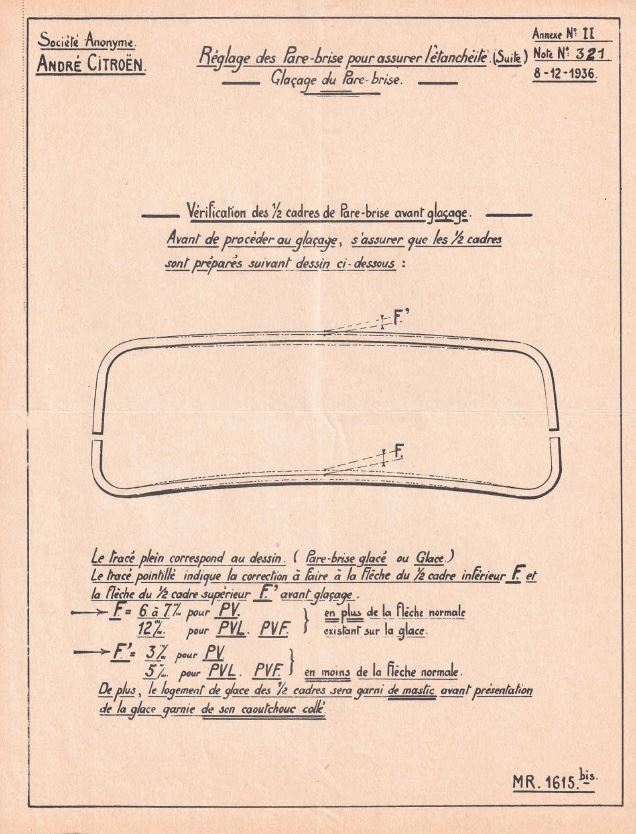 Société Anonyme.
ANDRÉ CITROËN.
Réglage des Pare-brise pour assurer l'étanchéité. (Suite)
Glaçage du Pare-brise.
Annexe N° II
Note N° 321
8-12-1936.
Vérification des 1/2 cadres de Pare-brise avant glaçage.
Avant de procéder au glaçage, s'assurer que les 1/2 cadres
sont préparés suivant dessin ci-dessous :
F'
F.
Le tracé plein correspond au dessin. ( Pare-brise glacé ou Glace.)
Le tracé pointillé indique la correction à faire à la flèche du 1/2 cadre inférieur F. et
la flèche du 1/2 cadre supérieur F' avant glaçage.
F = 6 à 7 m/m pour PV. } en plus de la flèche normale
12 m/m. pour PVL. PVF. existant sur la glace.
F' = 3 m/m pour PV
5 m/m. pour PVL. PVF. } en moins de la flèche normale.
De plus, le logement de glace des 1/2 cadres sera garni de mastic avant présentation
de la glace garnie de son caoutchouc collé
MR. 1615. bis.